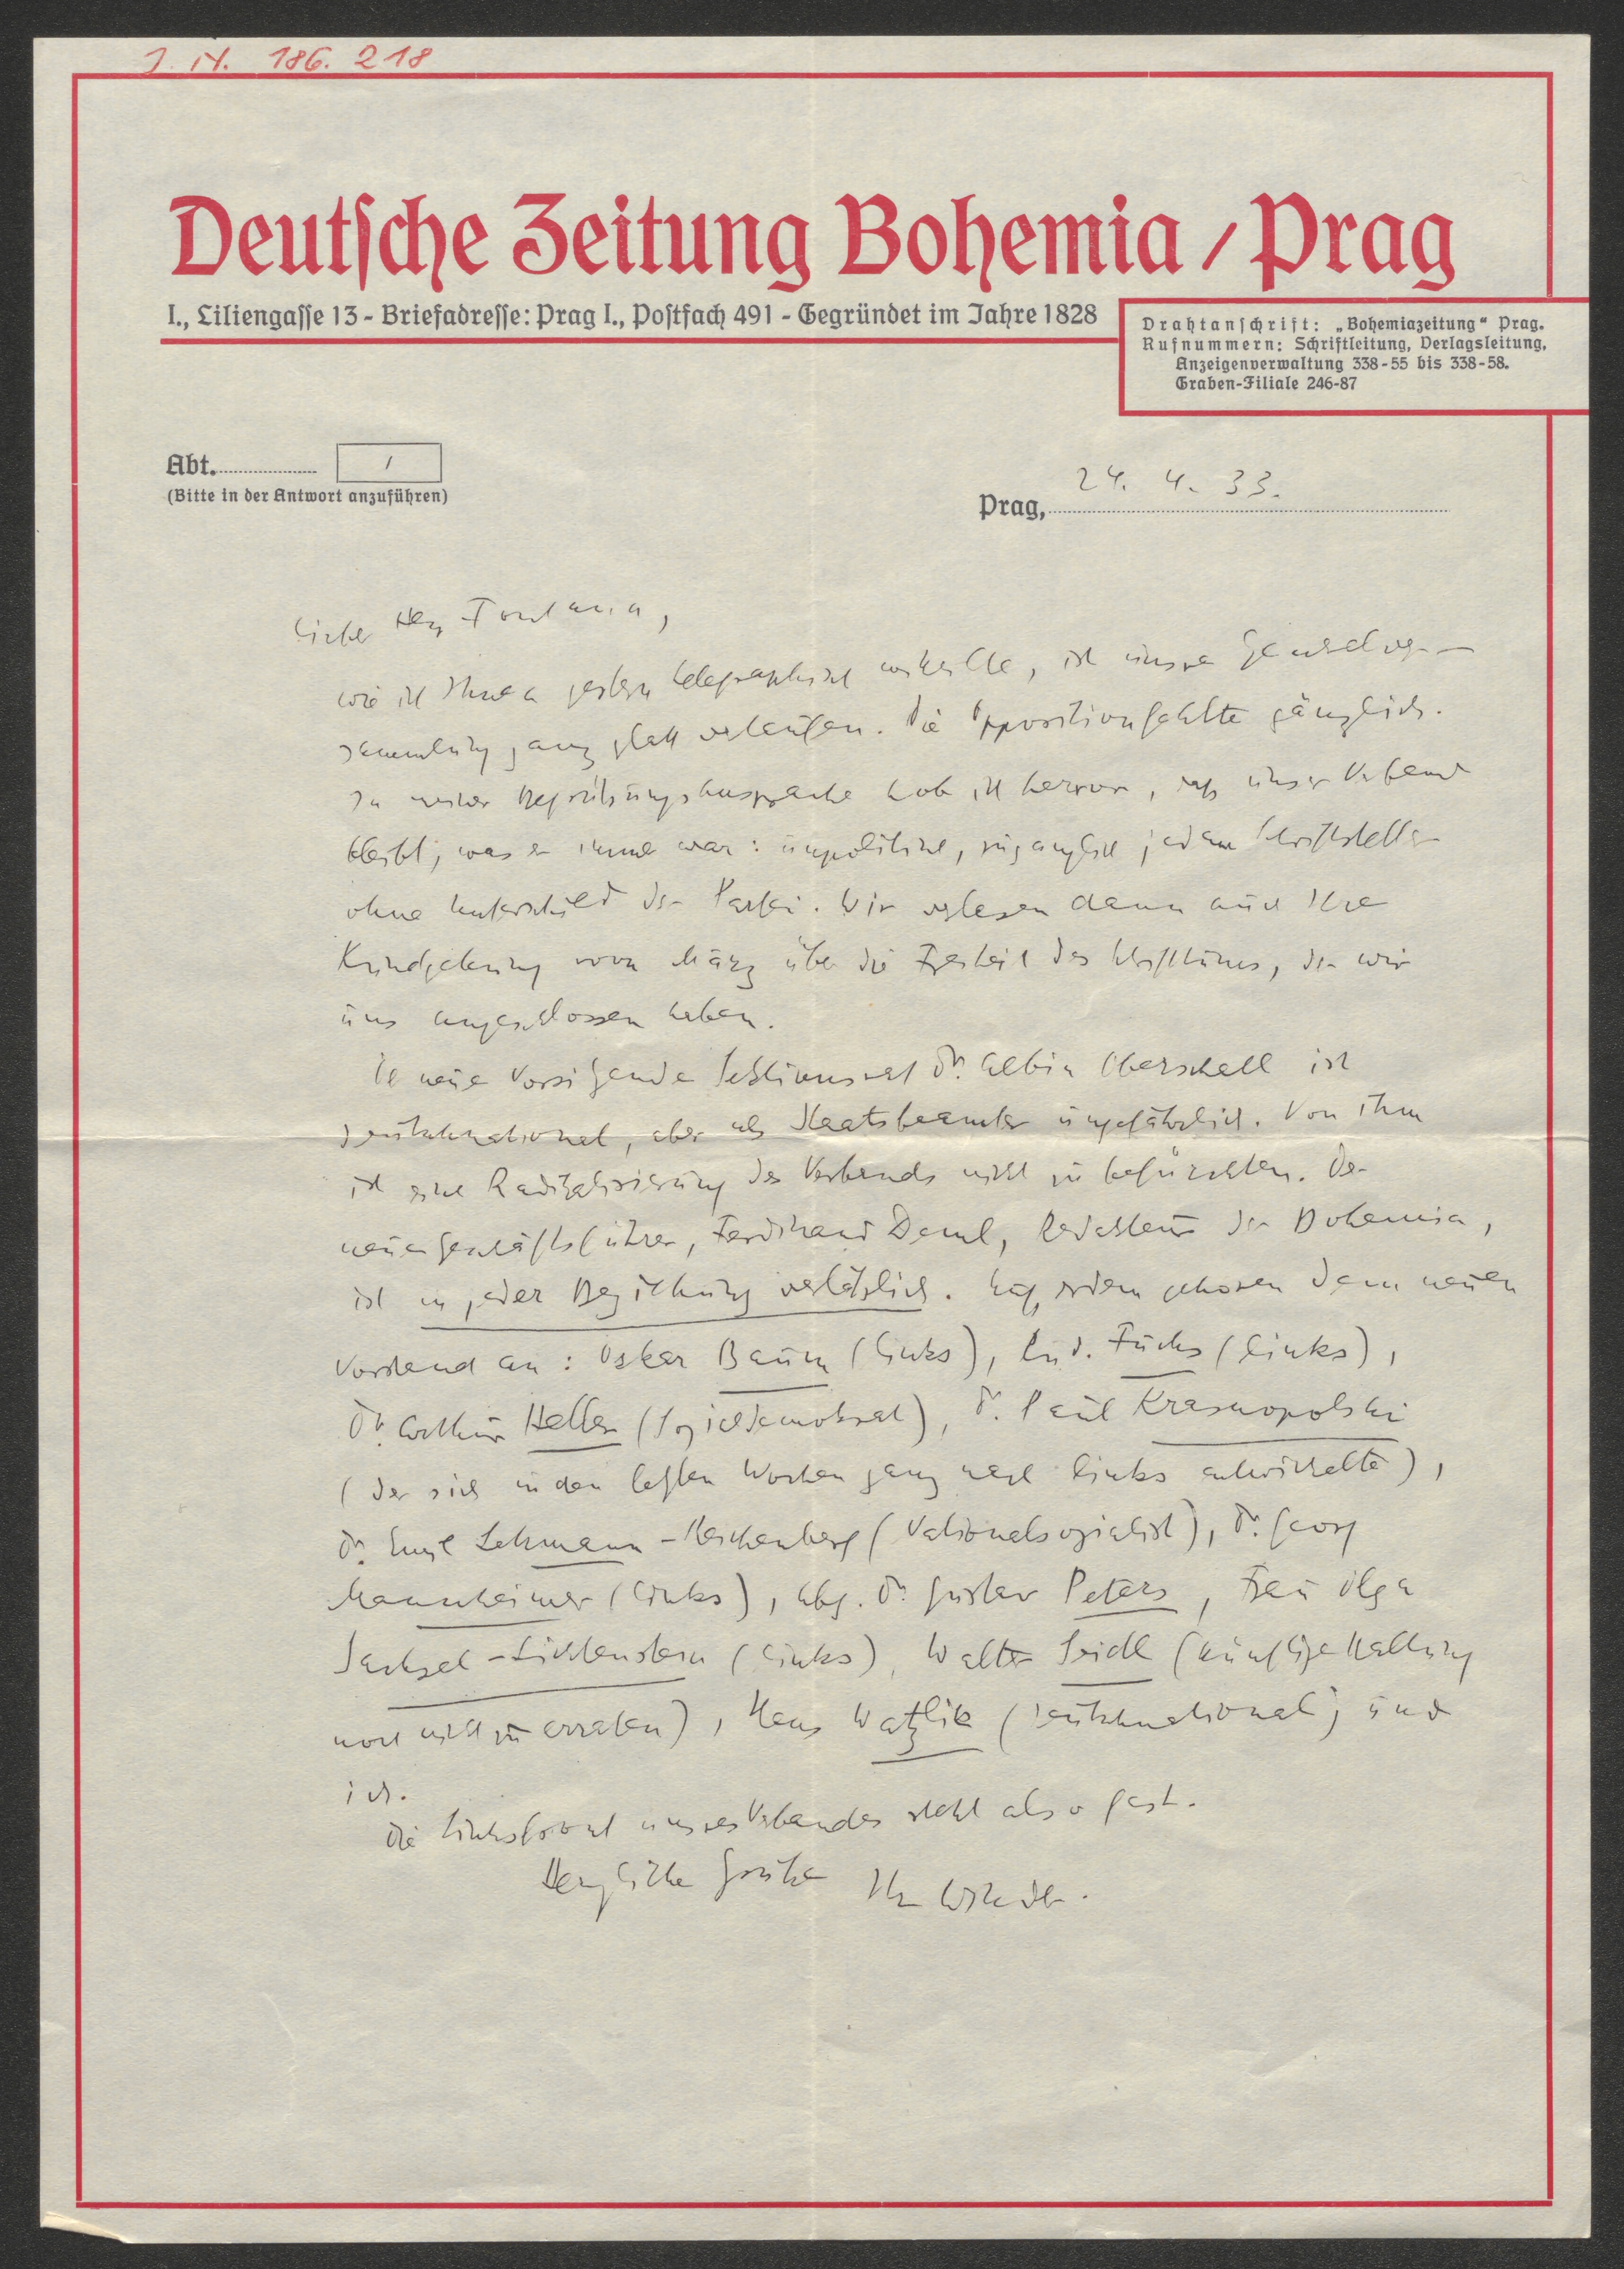 I. N. 186. 218
Deutsche Zeitung Bohemia / Prag
I., Liliengasse 13 - Briefadresse: Prag I., Postfach 491 - Gegründet im Jahre 1828
Drahtanschrift: „Bohemiazeitung“ Prag.
Rufnummern: Schriftleitung, Verlagsleitung,
Anzeigenverwaltung 338-55 bis 338-58.
Graben-Filiale 246-87
Abt. 1
(Bitte in der Antwort anzuführen)
Prag, 24. 4. 33.
Lieber Herr Fontana,
wie ich Ihnen gestern telegraphisch mitteilte, ist unsere Generalver-
sammlung ganz glatt verlaufen. Die Opposition fehlte gänzlich.
In meiner Begrüßungsansprache hob ich hervor, daß unser Verband
bleibt, was er immer war: unpolitisch, zugänglich jedem Schriftsteller
ohne Unterschied der Partei. Wir verlasen dann auch Ihre
Kundgebung vom März über die Freiheit des Schrifttums, der wir
uns angeschlossen haben.
Der neue Vorsitzende Sektionsrat Dr. Albin Oberschall ist
deutschnational, aber als Staatsbeamter ungefährlich. Von ihm
ist eine Radikalisierung des Verbands nicht zu befürchten. Der
neue Geschäftsführer, Ferdinand Deml, Redakteur der Bohemia,
ist in jeder Beziehung verläßlich. Außerdem gehören dem neuen
Vorstand an: Oskar Baum (links), Rud. Fuchs (links),
Dr. Arthur Heller (Sozialdemokrat), Dr. Paul Krasnopolski
(der sich in den letzten Wochen ganz nach links entwickelte),
Dr. Emil Lehmann-Reichenberg (Nationalsozialist), Dr. Georg
Mannheimer (links), Abg. Dr. Gustav Peters, Frau Olga
Sachsel-Lichtenstern (links), Walter Seidl (künftige Haltung
noch nicht zu erraten), Hans Watzlik (deutschnational) und
ich.
Die Linksfront unseres Verbandes steht also fest.
Herzliche Grüße Ihr